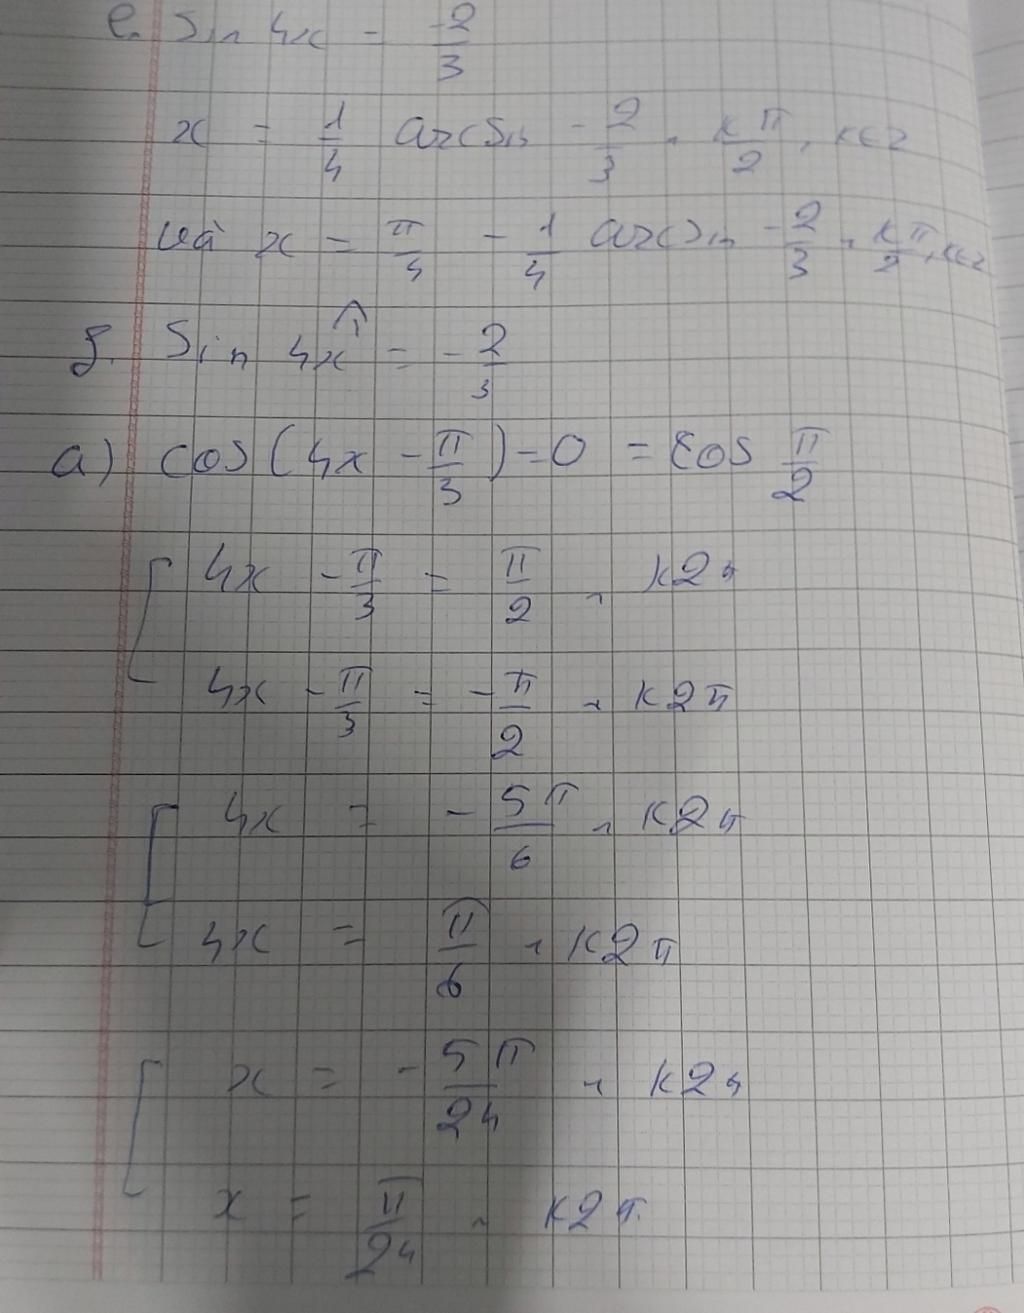 e. Sin 4x = -2/3
x = 1/4 arcsin -2/3 + kπ/2, k∈Z
và x = π/4 - 1/4 arcsin -2/3 + kπ/2, k∈Z
f. Sin 4x = -2/3
a) cos(4x - π/3) = 0 = cos π/2
4x - π/3 = π/2 + k2π
4x - π/3 = -π/2 + k2π
4x = -5π/6 + k2π
4x = π/6 + k2π
x = -5π/24 + k2π
x = π/24 + k2π